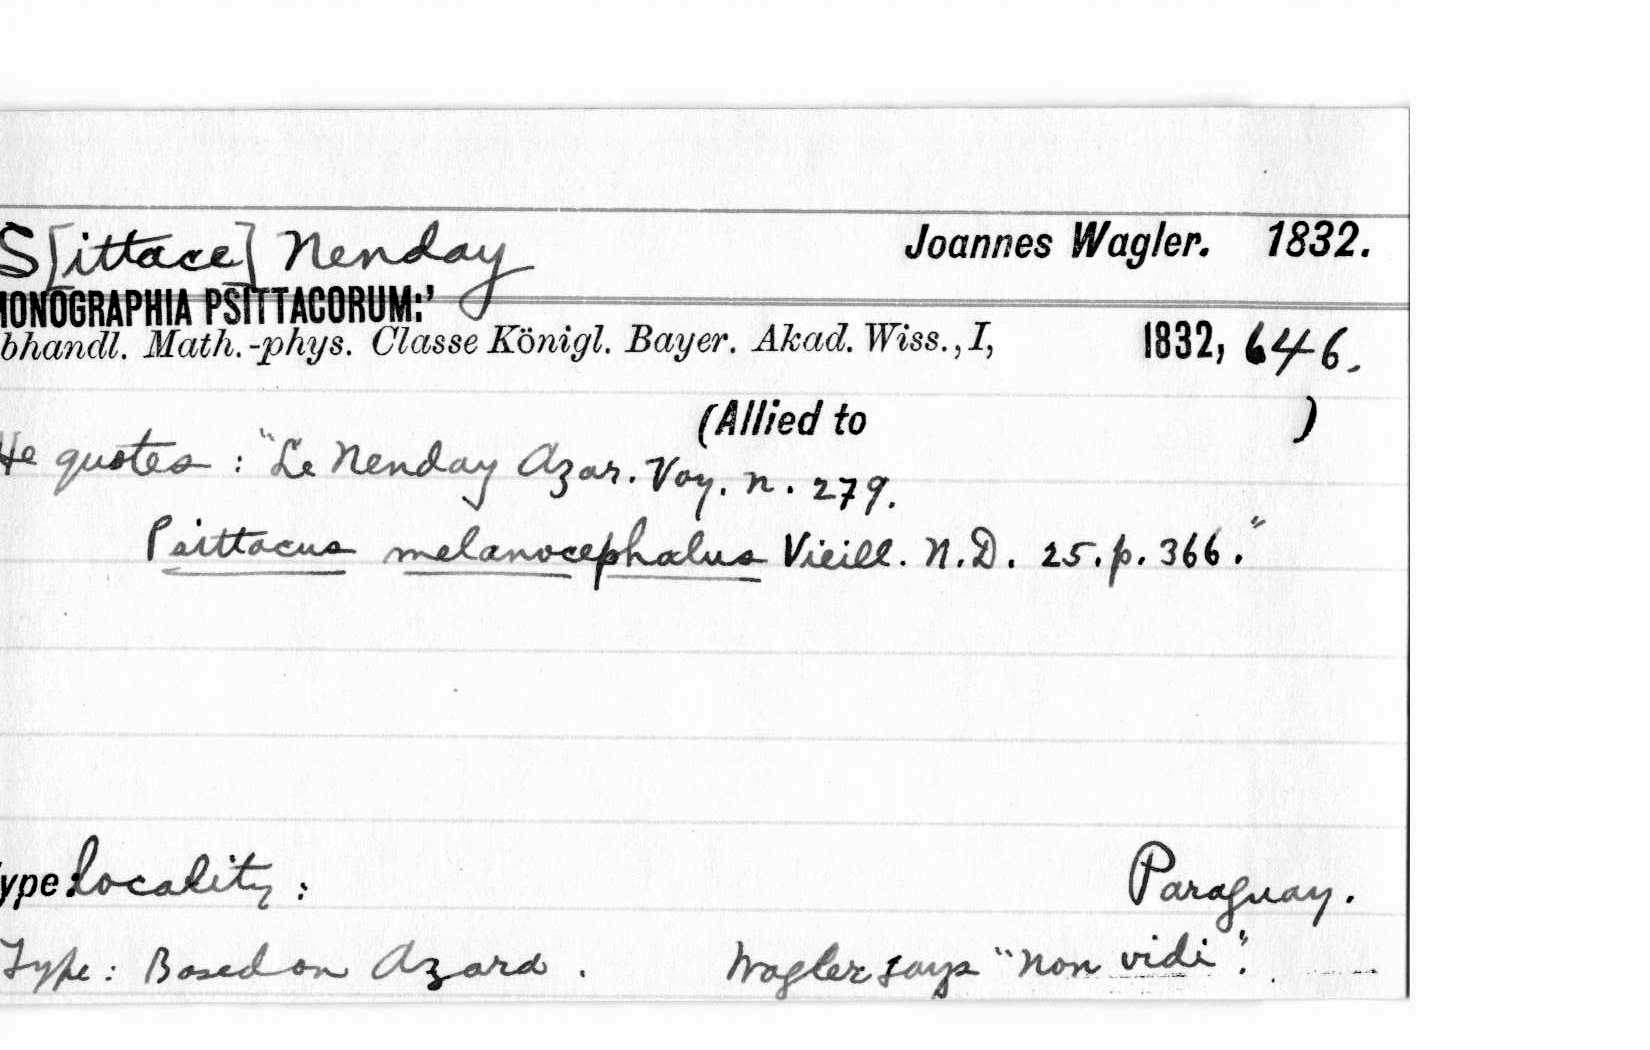 S[ittace] Nenday Joannes Wagler. 1832.
IONOGRAPHIA PSITTACORUM:’
bhandl. Math.-phys. Classe Königl. Bayer. Akad. Wiss., I, 1832, 646.
(Allied to )
He quotes : "Le Nenday Azar. Voy. n. 279.
Psittacus melanocephalus Vieill. N.D. 25. p. 366."
ype: locality : Paraguay.
Type: Based on Azara. Wagler says "non vidi".